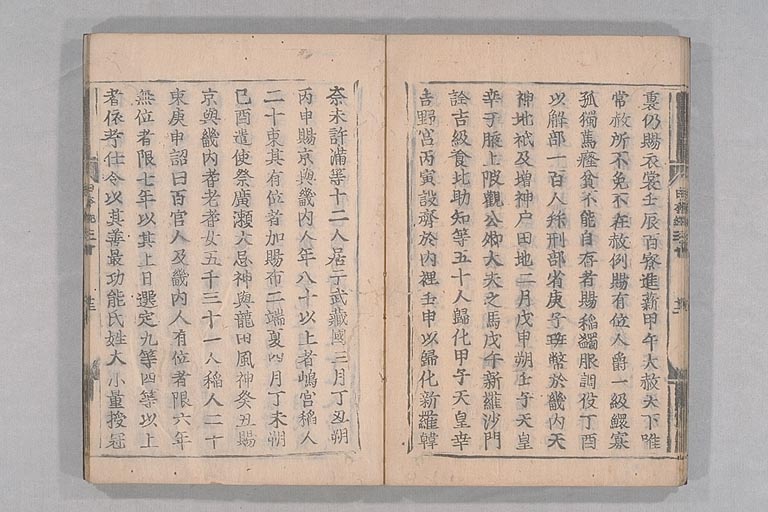 裏仍賜衣裳壬辰百寮進薪甲午大赦天下唯
常赦所不免不在赦例賜有位人爵一級鰥寡
孤獨篤癃貧不能自存者賜稲蠲服調役丁酉
以解部一百人拜刑部省庚子班幣於畿內天
神地祇及增神戸田地二月戊申朔壬子天皇
幸于腋上陂觀公卿大夫之馬戊午新羅沙門
詮吉級飡北助知等五十人歸化甲子天皇幸
吉野宮丙寅設齊於內裡壬申以歸化新羅韓
奈末許滿等十二人居于武藏國三月丁丑朔
丙申賜京與畿內人年八十以上者嶋宮稲人
二十束其有位者加賜布二端夏四月丁未朔
己酉遣使祭廣瀬大忌神與龍田風神癸丑賜
京與畿內耆老耆女五千三十一人稲人二十
束庚申詔曰百官人及畿內人有位者限六年
無位者限七年以其上日選定九等四等以上
者依考仕令以其善最功能氏姓大小量授冠